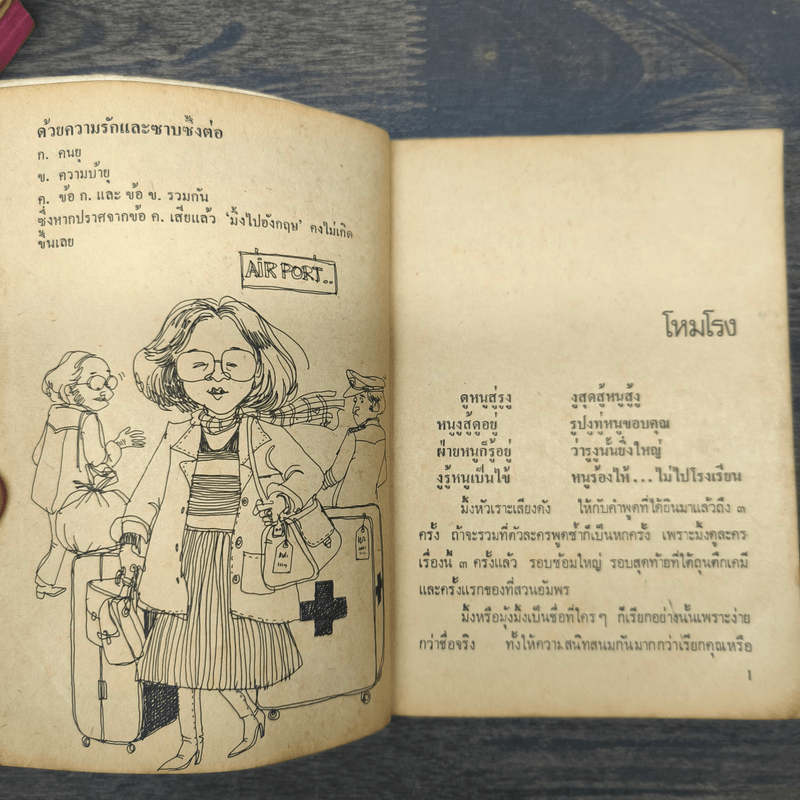 ด้วยความรักและซาบซึ้งต่อ
ก. คนยุ
ข. ความบ้ายุ
ค. ข้อ ก. และ ข้อ ข. รวมกัน
ซึ่งหากปราศจากข้อ ค. เสียแล้ว 'มิ้งไปอังกฤษ' คงไม่เกิด
ขึ้นเลย
AIRPORT..
โหมโรง
ดูหนูสู่รูงู งูสุดสู้หนูสู้งู
หนูงูสู้ดูอยู่ รูปงูทู่หนูขอบคุณ
ฝ่ายหนูก็รู้อยู่ ว่ารูงูนั้นยิ่งใหญ่
งูรู้หนูเป็นไข้ หนูร้องไห้...ไม่ไปโรงเรียน
มิ้งหัวเราะเสียงดัง ให้กับคำพูดที่ได้ยินมาแล้วถึง ๓
ครั้ง ถ้าจะรวมที่ตัวละครพูดซ้ำก็เป็นหกครั้ง เพราะมิ้งดูละคร
เรื่องนี้ ๓ ครั้งแล้ว รอบซ้อมใหญ่ รอบสุดท้ายที่ใต้ถุนตึกเคมี
และครั้งแรกของที่สวนอัมพร
มิ้งหรือมุ้งมิ้งเป็นชื่อที่ใครๆ ก็เรียกอย่างนั้นเพราะง่าย
กว่าชื่อจริง ทั้งให้ความสนิทสนมกันมากกว่าเรียกคุณหรือ
1